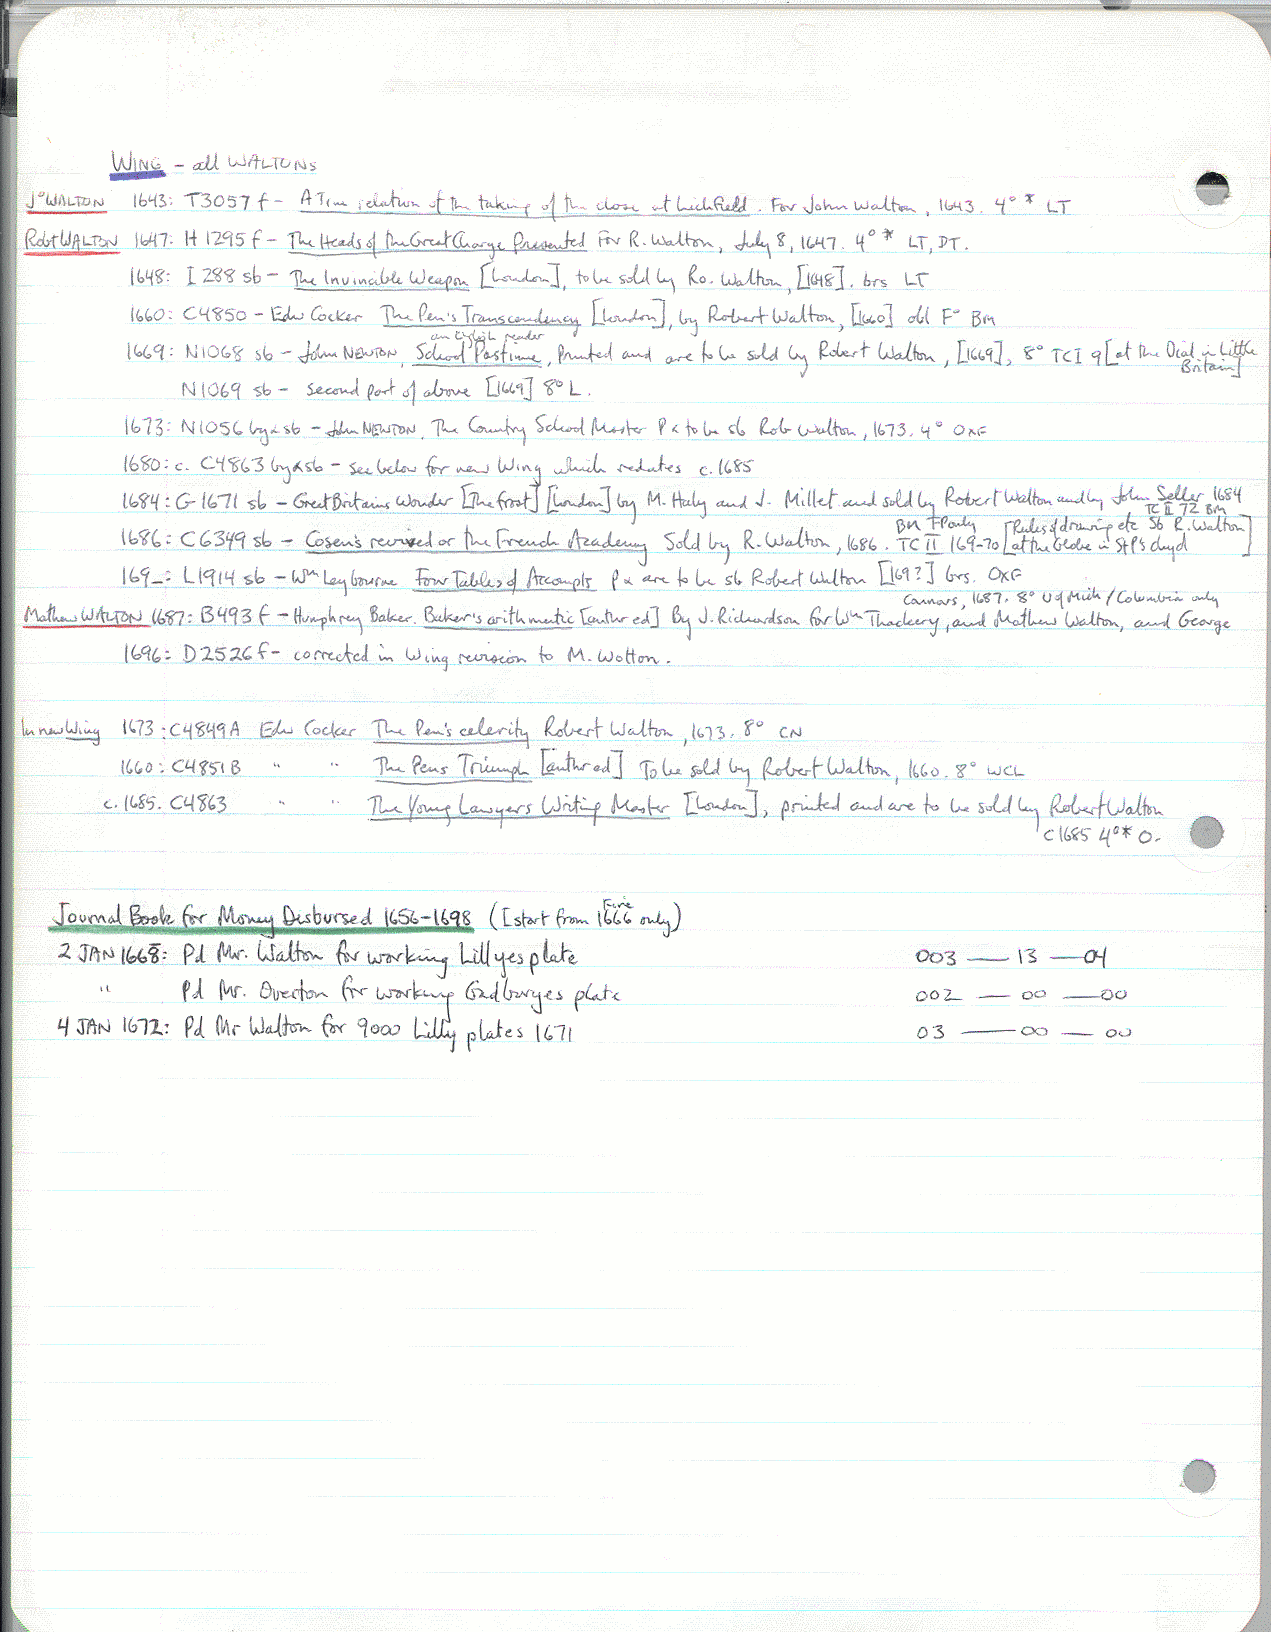 WING - all WALTONS
Jº WALTON 1643: T3057 f - A True relation of the taking of the close at Lichfield. For John Walton, 1643. 4º * LT
Robt WALTON 1647: H1295 f - The Heads of the Great Charge Presented For R. Walton, July 8, 1647. 4º * LT, DT.
1648: I 288 sb - The Invincible Weapon [London], to be sold by Ro. Walton, [1648]. brs LT
1660: C4850 - Edw Cocker The Pen's Transcendency [London], by Robert Walton, [1660] obl Fº BM
an English reader
1669: N1068 sb - John NEWTON, School Pastime, Printed and are to be sold by Robert Walton, [1669], 8º TCI 9 [at the Dial in Little
Britain]
N1069 sb - second part of above [1669] 8º L.
1673: N1056 by & sb - John NEWTON. The Country School Master P & to be sb Rob Walton, 1673. 4º OXF
1680: c. C4863 by & sb - see below for new Wing which redates c. 1685
1684: G1671 sb - Great Britains Wonder [The frost] [London] by M. Haly and J. Millet and sold by Robert Walton and by John Seller 1684
TC II 72 BM
BM TP only [Rules of drawing etc Sb R. Walton]
1686: C6349 sb - Cosen's revised or the French Academy Sold by R. Walton, 1686. TC II 169-70 [at the Globe in St P's chyd
169_: L1914 sb - Wm Leybourne Four Tables of Accompts P & are to be sb Robert Walton [169?] brs. OXF
Connors, 1687. 8º U of Mich / Columbia only
Mathew WALTON 1687: B493 f - Humphrey Baker. Baker's arithmetic [anthr ed] By J. Richardson for Wm Thackery, and Mathew Walton, and George
1696: D2526 f - corrected in Wing revision to M. Wotton.
In new Wing 1673: C4849A Edw Cocker The Pen's celerity Robert Walton, 1673. 8º CN
1660: C4851B " " The Pens Triumph [anthr ed] To be sold by Robert Walton, 1660. 8º WCL
c. 1685. C4863 " " The Young Lawyers Writing Master [London], printed and are to be sold by Robert Walton
c1685 4º* O.
Fire
Journal Book for Money Disbursed 1656-1698 ([start from 1666 only)
2 JAN 1668: Pd Mr. Walton for working Lillyes plate 003 — 13 — 04
" Pd Mr. Overton for working Gadburyes plate 002 — 00 — 00
4 JAN 1672: Pd Mr Walton for 9000 Lilly plates 1671 03 — 00 — 00